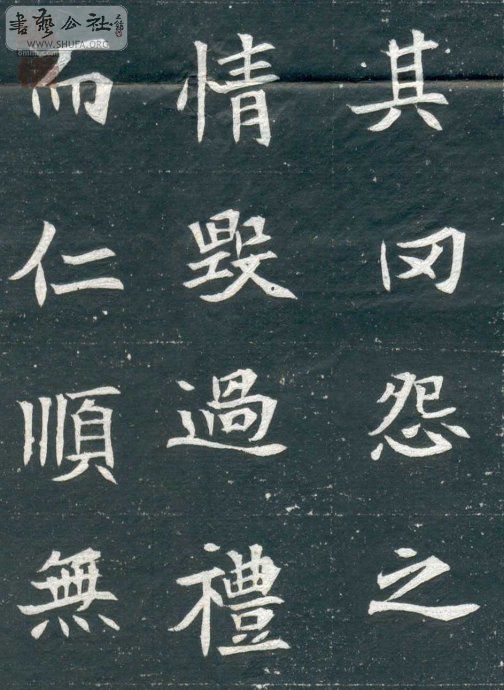 書藝公社
WWW.SHUFA.ORG
其罔怨之
情毀過禮
而仁順無